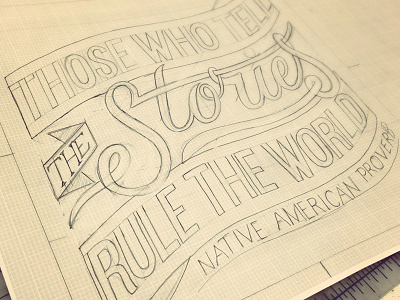 THOSE WHO TELL
THE Stories
RULE THE WORLD
NATIVE AMERICAN PROVERB